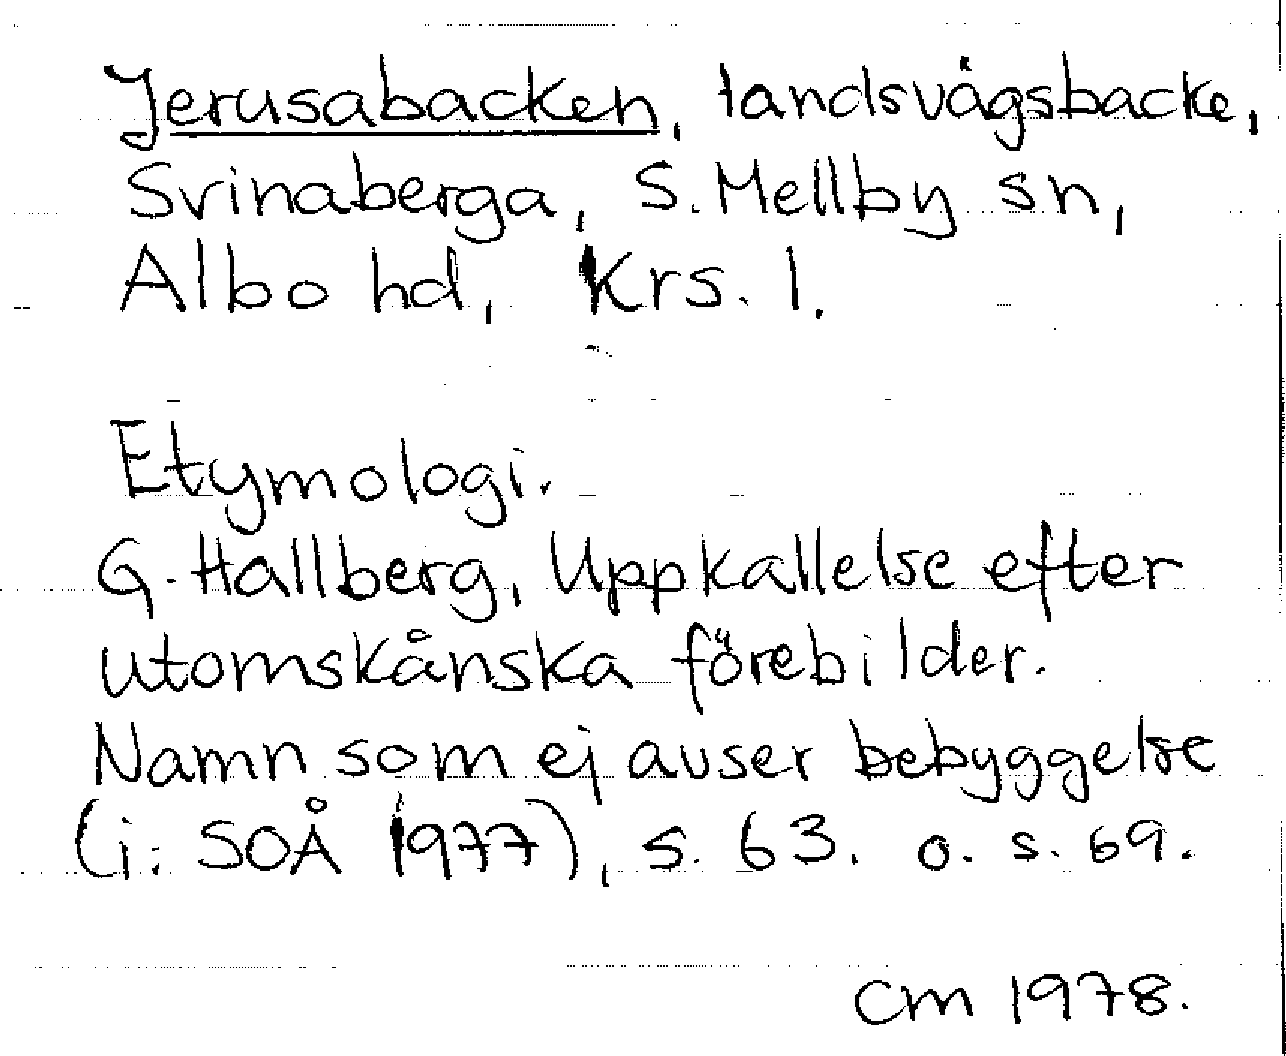 Jerusabacken, landsvägsbacke,
Svinaberga, S. Mellby sn,
Albo hd, Krs. l.
Etymologi.
G. Hallberg, Uppkallelse efter
utomskånska förebilder.
Namn som ej avser bebyggelse
(i: SOÅ 1977), s. 63. o. s. 69.
cm 1978.